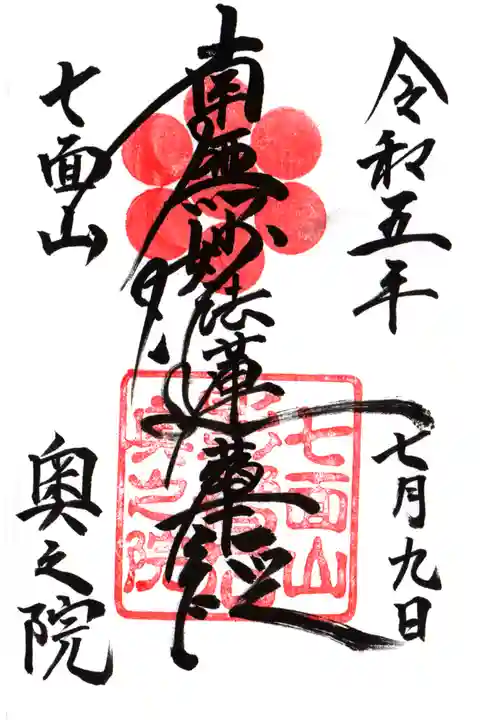 令和五年 七月九日
南無妙法蓮華経
七面山 奥之院
七面山
奥之院